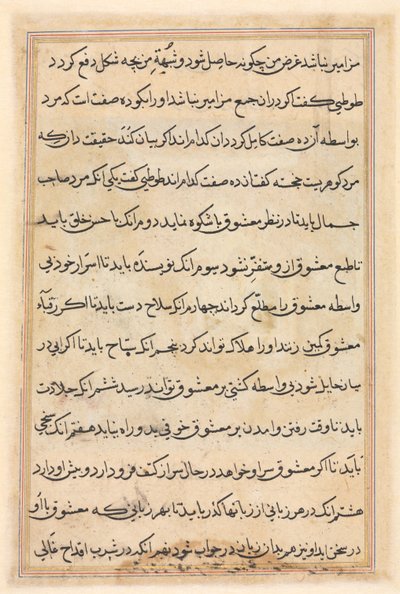 مزامیر نباشد غرض من چکونه حاصل شود و شبهةِ من بچه شکل دفع کردد
طوطی کفت کر دران جمع مزامیر نباشد اورا بکو ده صفت است که مرد
بواسطه آن ده صفت کامل کردد ان کدام اند اکر بیان کند حقیقت دانم که
مرد کوهریست خجسته کفت ان ده صفت کدام اند طوطی کفت یکی انکه مرد صاحب
جمال باید تا در نظر معشوق با شکوه نماید دوم انک با حسن خلق باید
تا طبع معشوق از و متنفّر نشود سوم انک نویسنده باید تا اسرار خود بی
واسطه معشوق را مطلّع کرداند چهارم انک سلاح دست باید تا اکر رقبآء
معشوق کمین زنند او را هلاک تواند کرد پنجم انک سبّاح باید تا اکر ابی در
میان حایل شود بی واسطه کشتی بر معشوق تواند رسید ششم انک جلادت
باید تا وقت رفتن و امدن بر معشوق خوفی بدو راه نیابد هفتم انک سخی
باید تا اکر معشوق سر او خواهد در حال سر از کتف فرود ارد و پیش او دارد
هشتم انک در هر زبانی از زبانها کذر باید تا بهر زبانی که معشوق با او
در سخن اید او نیز هم بدان زبان در جواب شود نهم انک در شرب اقداح غالی